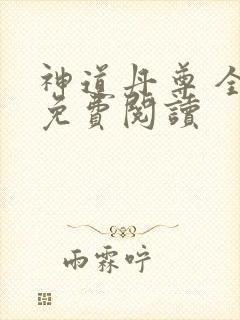 神道丹尊全
免費閱讀
雨霖咛